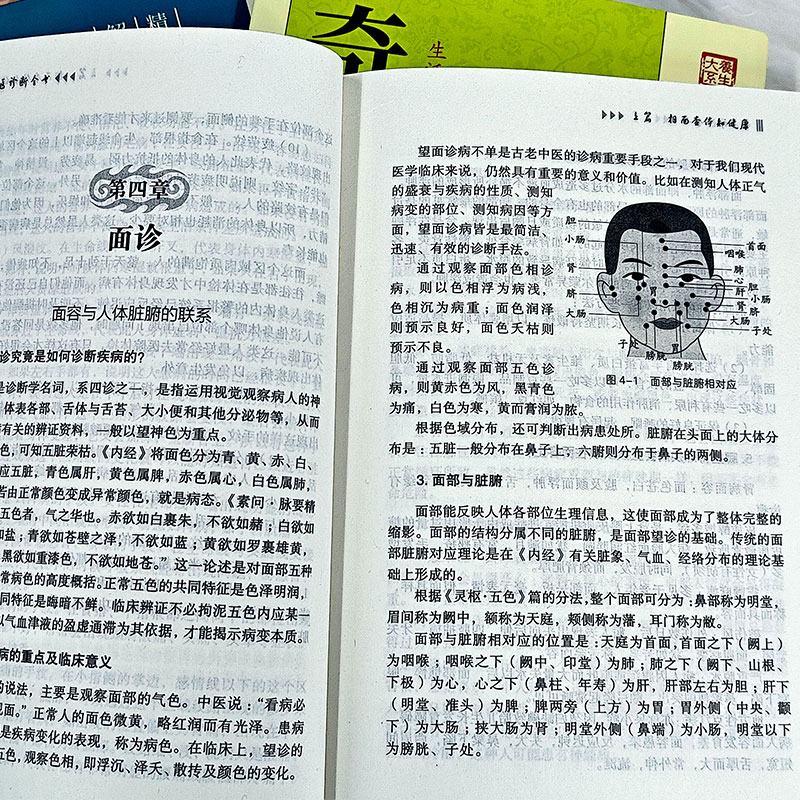 解
精
奇
生活
养生
大系
诊断全书
第四章
面诊
面容与人体脏腑的联系
诊究竟是如何诊断疾病的?
是诊断学名词,系四诊之一,是指运用视觉观察病人的神
体表各部、舌体与舌苔、大小便和其他分泌物等,从而
有关的辨证资料,一般以望神色为重点。
色,可知五脏荣枯。《内经》将面色分为青、黄、赤、白、
应五脏,青色属肝,黄色属脾,赤色属心,白色属肺,
若由正常颜色变成异常颜色,就是病态。《素问·脉要精
五色者,气之华也。赤欲如白裹朱,不欲如赭;白欲如
如盐;青欲如苍璧之泽,不欲如蓝;黄欲如罗裹雄黄,
黑欲如重漆色,不欲如地苍。”这一论述是对面部五种
常病色的高度概括。正常五色的共同特征是色泽明润,
同特征是晦暗不鲜。临床辨证不必拘泥五色内应某一
以气血津液的盈虚通滞为其依据,才能揭示病变本质。
病的重点及临床意义
的说法,主要是观察面部的气色。中医说:“看病必
见面。”正常人的面色微黄,略红润而有光泽。患病
是疾病变化的表现,称为病色。在临床上,望诊的
五色,观察色相,即浮沉、泽夭、散抟及颜色的变化。
上篇 相面查体知健康
望面诊病不单是古老中医的诊病重要手段之一,对于我们现代
医学临床来说,仍然具有重要的意义和价值。比如在测知人体正气
的盛衰与疾病的性质、测知
病变的部位、测知病因等方
面,望面诊病皆是最简洁、
迅速、有效的诊断手法。
通过观察面部色相诊
病,则以色相浮为病浅,
色相沉为病重;面色润泽
则预示良好,面色夭枯则
预示不良。
通过观察面部五色诊
病,则黄赤色为风,黑青色
为痛,白色为寒,黄而膏润为脓。
胆
小肠
肾
脐
大肠
子处
膀胱
胃
首面
咽喉
肺
心
肝
胆
小肠
肾
脐
大肠
子处
膀胱
图 4-1 面部与脏腑相对应
根据色域分布,还可判断出病患处所。脏腑在头面上的大体分
布是:五脏一般分布在鼻子上,六腑则分布于鼻子的两侧。
3. 面部与脏腑
面部能反映人体各部位生理信息,这使面部成为了整体完整的
缩影。面部的结构分属不同的脏腑,是面部望诊的基础。传统的面
部脏腑对应理论是在《内经》有关脏象、气血、经络分布的理论基
础上形成的。
根据《灵枢·五色》篇的分法,整个面部可分为:鼻部称为明堂,
眉间称为阙中,额称为天庭,颊侧称为藩,耳门称为蔽。
面部与脏腑相对应的位置是:天庭为首面,首面之下(阙上)
为咽喉;咽喉之下(阙中、印堂)为肺;肺之下(阙下、山根、
下极)为心,心之下(鼻柱、年寿)为肝,肝部左右为胆;肝下
(明堂、准头)为脾;脾两旁(上方)为胃;胃外侧(中央、颧
下)为大肠;挟大肠为肾;明堂外侧(鼻端)为小肠,明堂以下
为膀胱、子处。